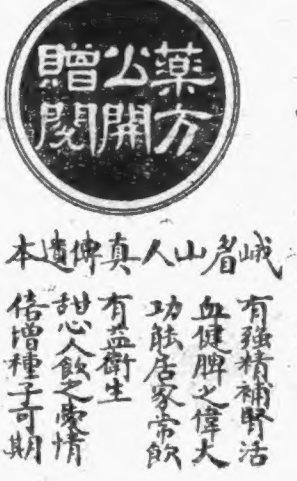 藥方
公開
贈閱
峨眉山人真傳遺本
有強精補腎活
血健脾之偉大
功能居家常飲
有益衛生
甜心人飲之愛情
倍增種子可期